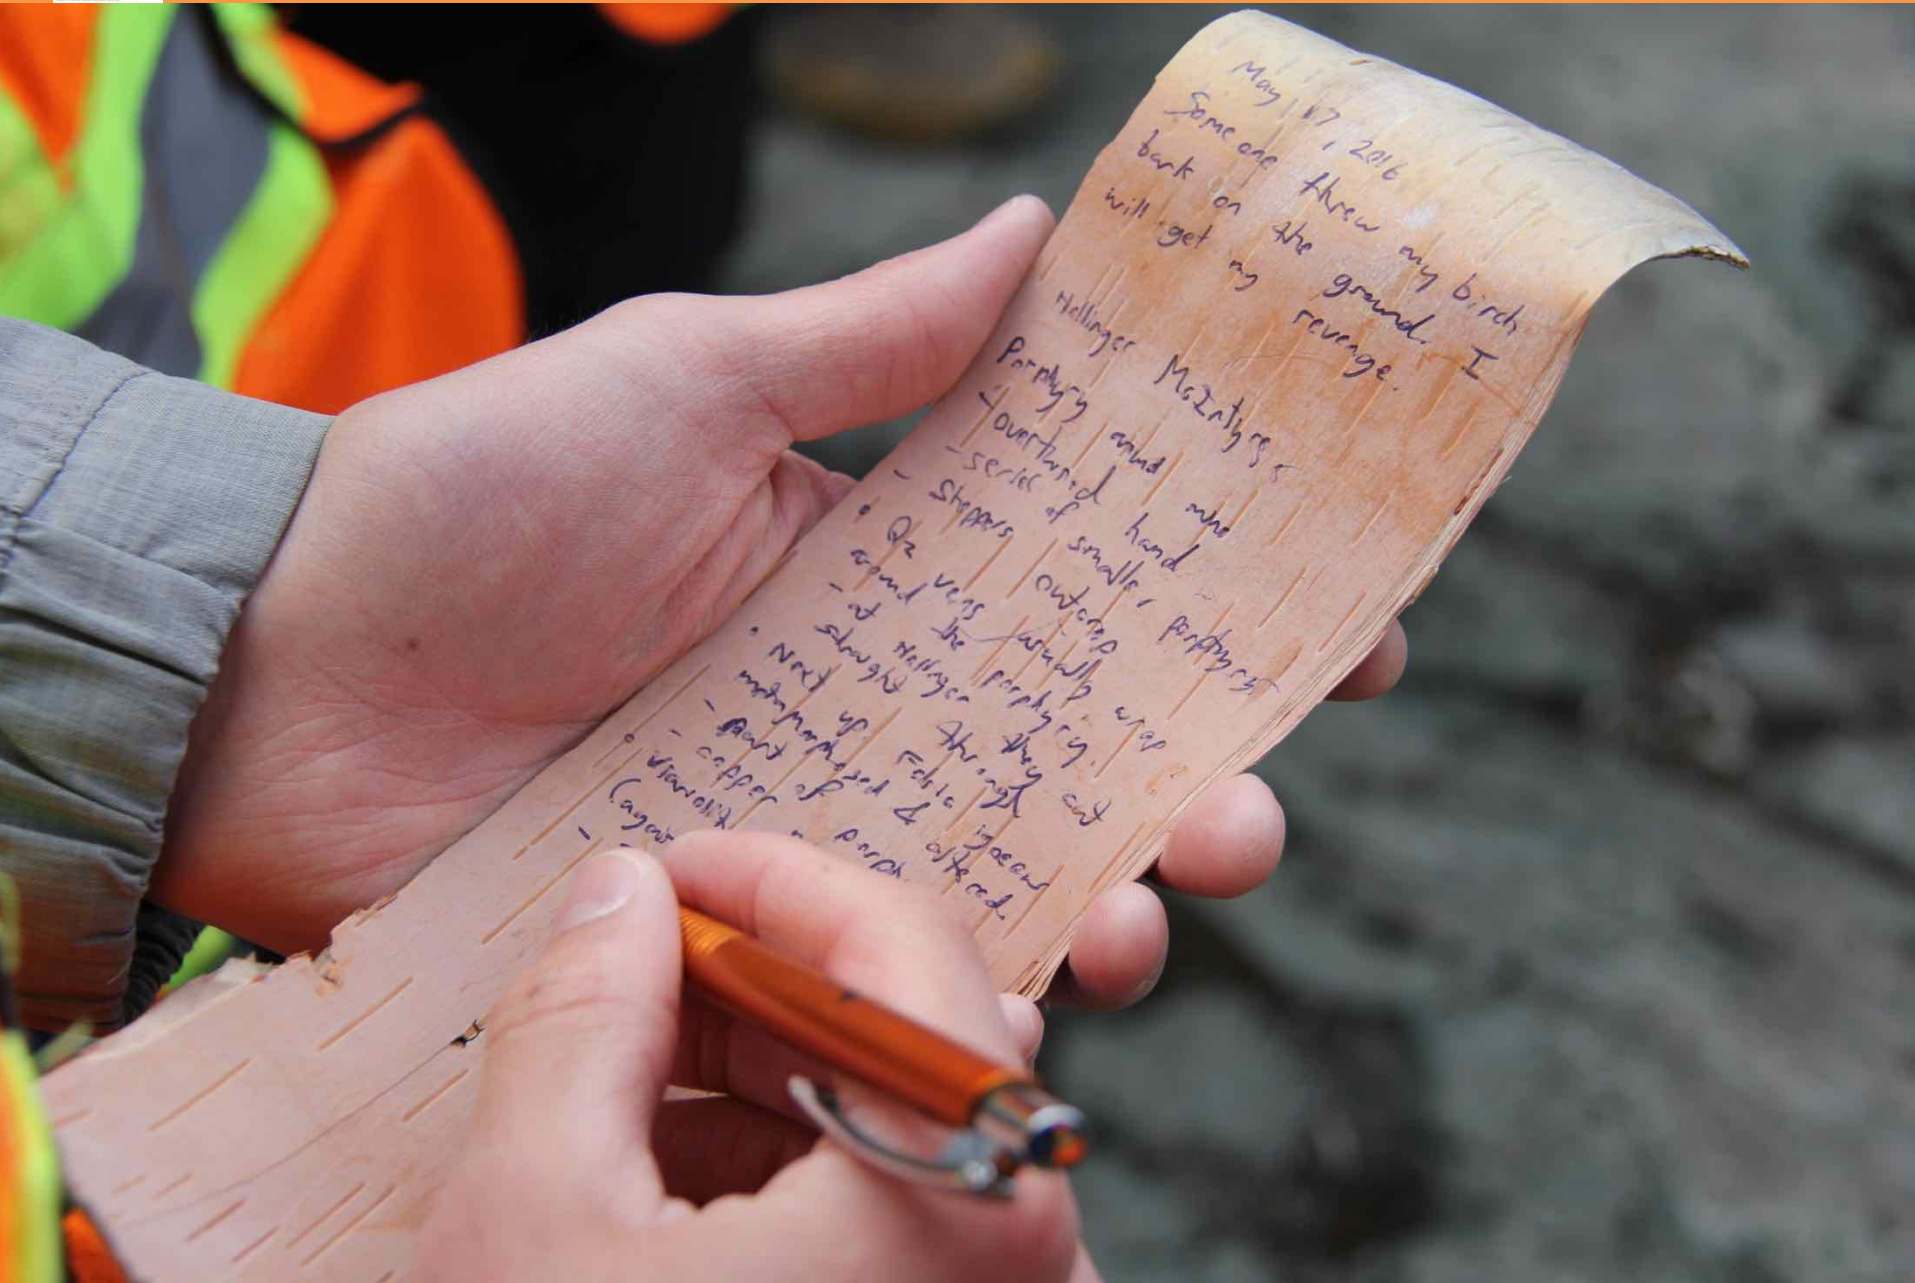 May 17, 2016
Someone threw my birch
bark on the ground. I
will get my revenge.
Hollinger McIntyre
Porphyry around mine
- overturned hand
- series of smaller porphyries
- Shoppers outcrop
• Qz veins usually wrap
around the porphyry.
- at Hollinger they cut
straight through
• Next up Felsic igneous
metamorphosed & altered.
- part of porph
- copper
• variolit
(again
-